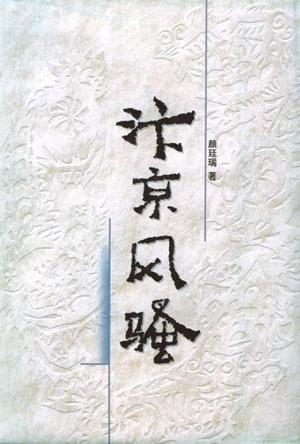 汴京风骚
颜廷瑞 著